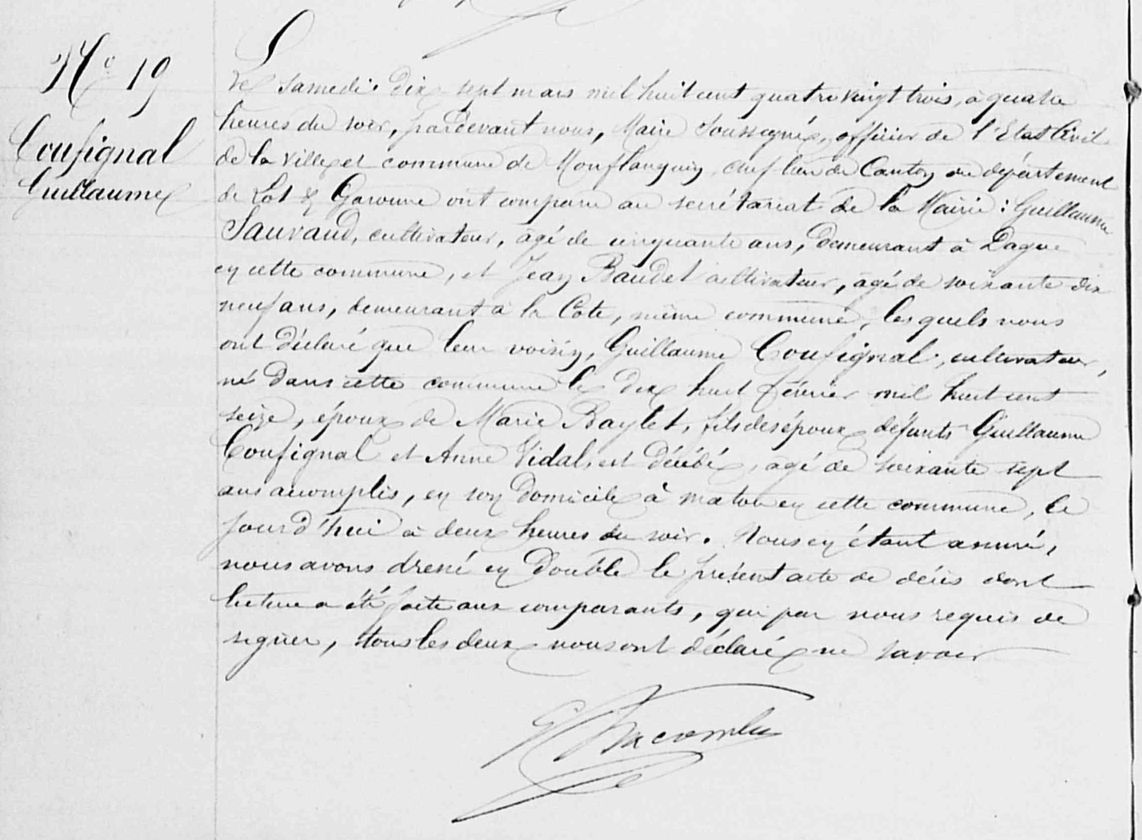 No 19
Coufignal
Guillaume
Le samedi dix sept mars mil huit cent quatre vingt trois, à quatre
heures du soir, pardevant nous, Maire soussigné, officier de l'Etat Civil
de la Ville et commune de Monflanquin, chef lieu de Canton du département
de Lot & Garonne ont comparu au secrétariat de la Mairie : Guillaume
Sauvaud, cultivateur, âgé de cinquante ans, demeurant à Dague
en cette commune, et Jean Baudet cultivateur, âgé de soixante dix
neuf ans, demeurant à la Cote, même commune, lesquels nous
ont déclaré que leur voisin, Guillaume Coufignal, cultivateur,
né dans cette commune le dix huit février mil huit cent
seize, époux de Marie Baylet, fils des époux défunts Guillaume
Coufignal et Anne Vidal, est décédé, âgé de soixante sept
ans accomplis, en son domicile à en cette commune, ce
jourd'hui à deux heures du soir. Nous en étant assuré,
nous avons dressé en double le présent acte de décès dont
lecture a été faite aux comparants, qui par nous requis de
signer, tous les deux nous ont déclaré ne savoir